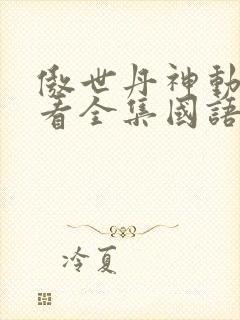 傲世丹神動
看全集國語
冷夏